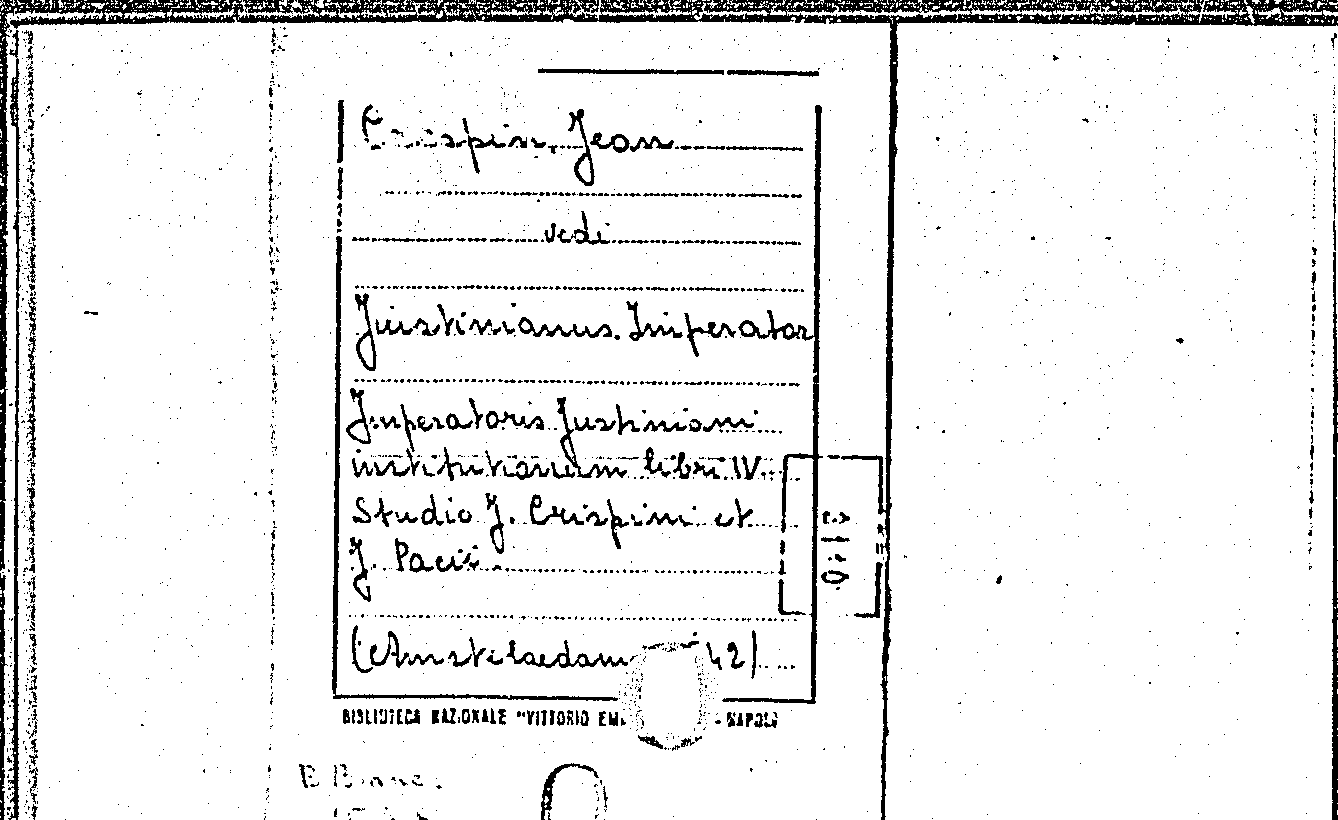 Crespin, Jean
vedi
Justinianus Imperator
Imperatoris Justiniani
institutionum libri IV
Studio J. Crispini et
J. Pacii.
(Amstelaedami 42)
BIBLIOTECA NAZIONALE "VITTORIO - NAPOLI